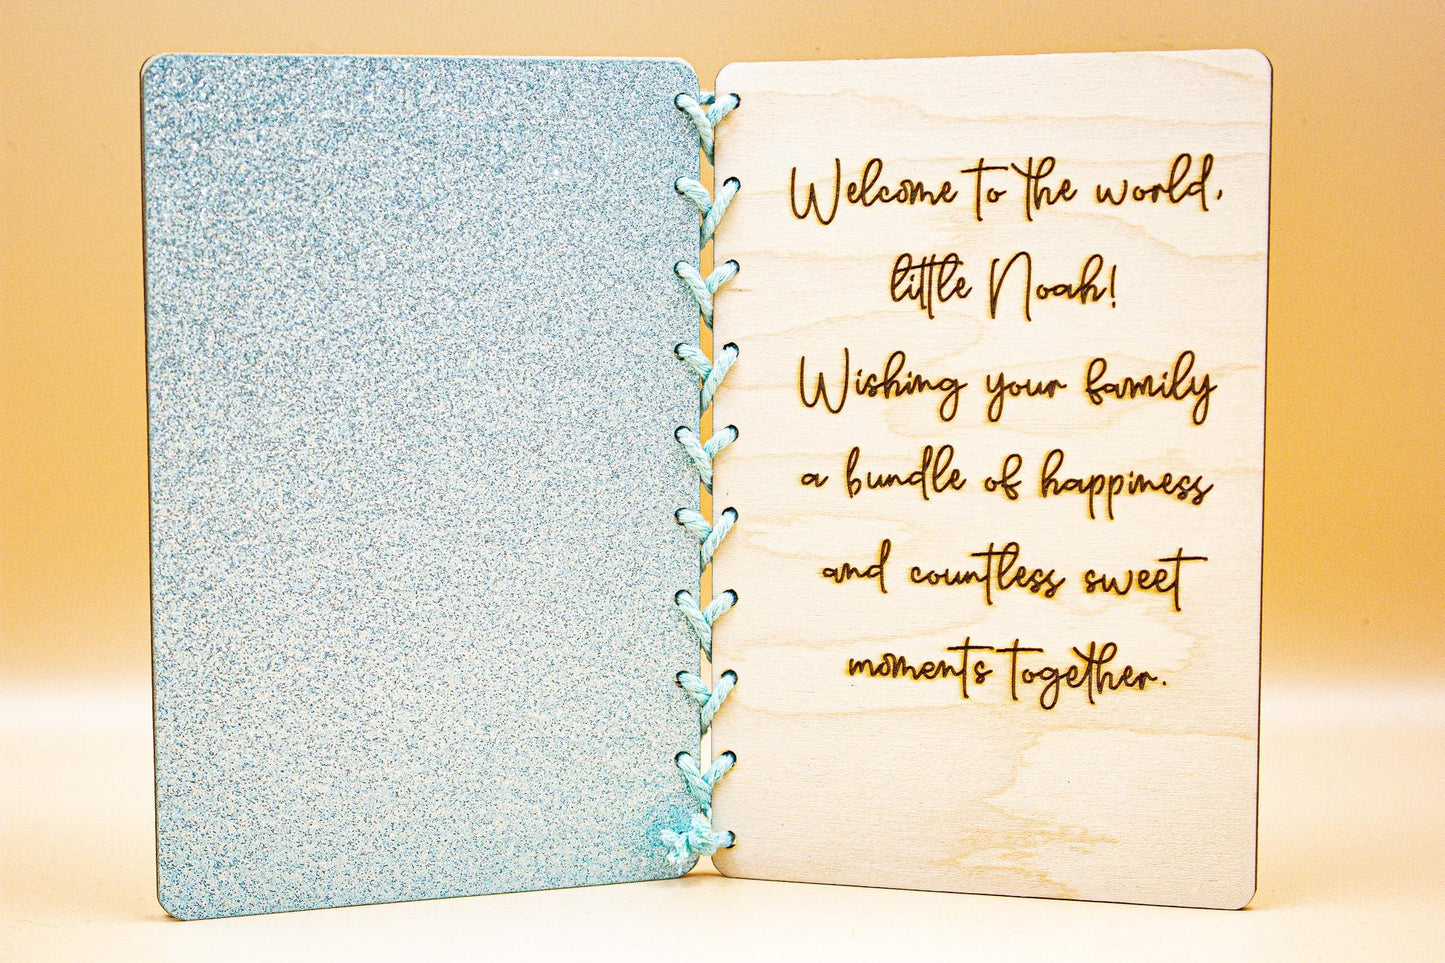 Welcome to the world,
little Noah!
Wishing your family
a bundle of happiness
and countless sweet
moments together.